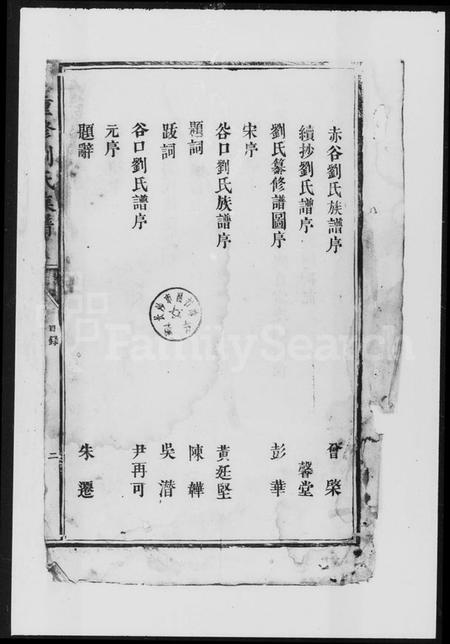 赤谷劉氏族譜序 曾榮
續抄劉氏譜序 馨堂
劉氏纂修譜圖序 彭華
宋序
谷口劉氏族譜序 黃廷堅
題詞 陳韡
跋詞 吳潛
谷口劉氏譜序 尹再可
元序
題辭 朱遷
重修劉氏族譜
目錄
二
FamilySearch